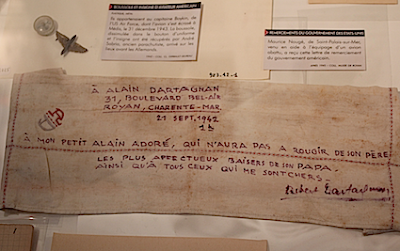 BOUTONNIÈRE ET INSIGNE D'AVIATEUR AMÉRICAIN
Ils appartenaient au capitaine Boykin, de
l'US Air Force, dont l'avion s'est écrasé à
le 31 décembre 1943. La
REMERCIEMENTS DU GOUVERNEMENT DES ÉTATS-UNIS
Maurice Nougé, de Saint-Palais-sur-Mer,
venu en aide à l'équipage d'un avion
abattu, a reçu cette lettre de remerciement
du gouvernement américain.
À ALAIN DARTAGNAN
31, BOULEVARD BEL-AIR
ROYAN, CHARENTE-MAR.
21 SEPT. 1942
1h
À MON PETIT ALAIN ADORÉ, QUI N'AURA PAS A ROUGIR DE SON PÈRE
LES PLUS AFFECTUEUX BAISERS DE SON PAPA.
AINSI QU'À TOUS CEUX QUI ME SONT CHERS.
Robert Dartagnan